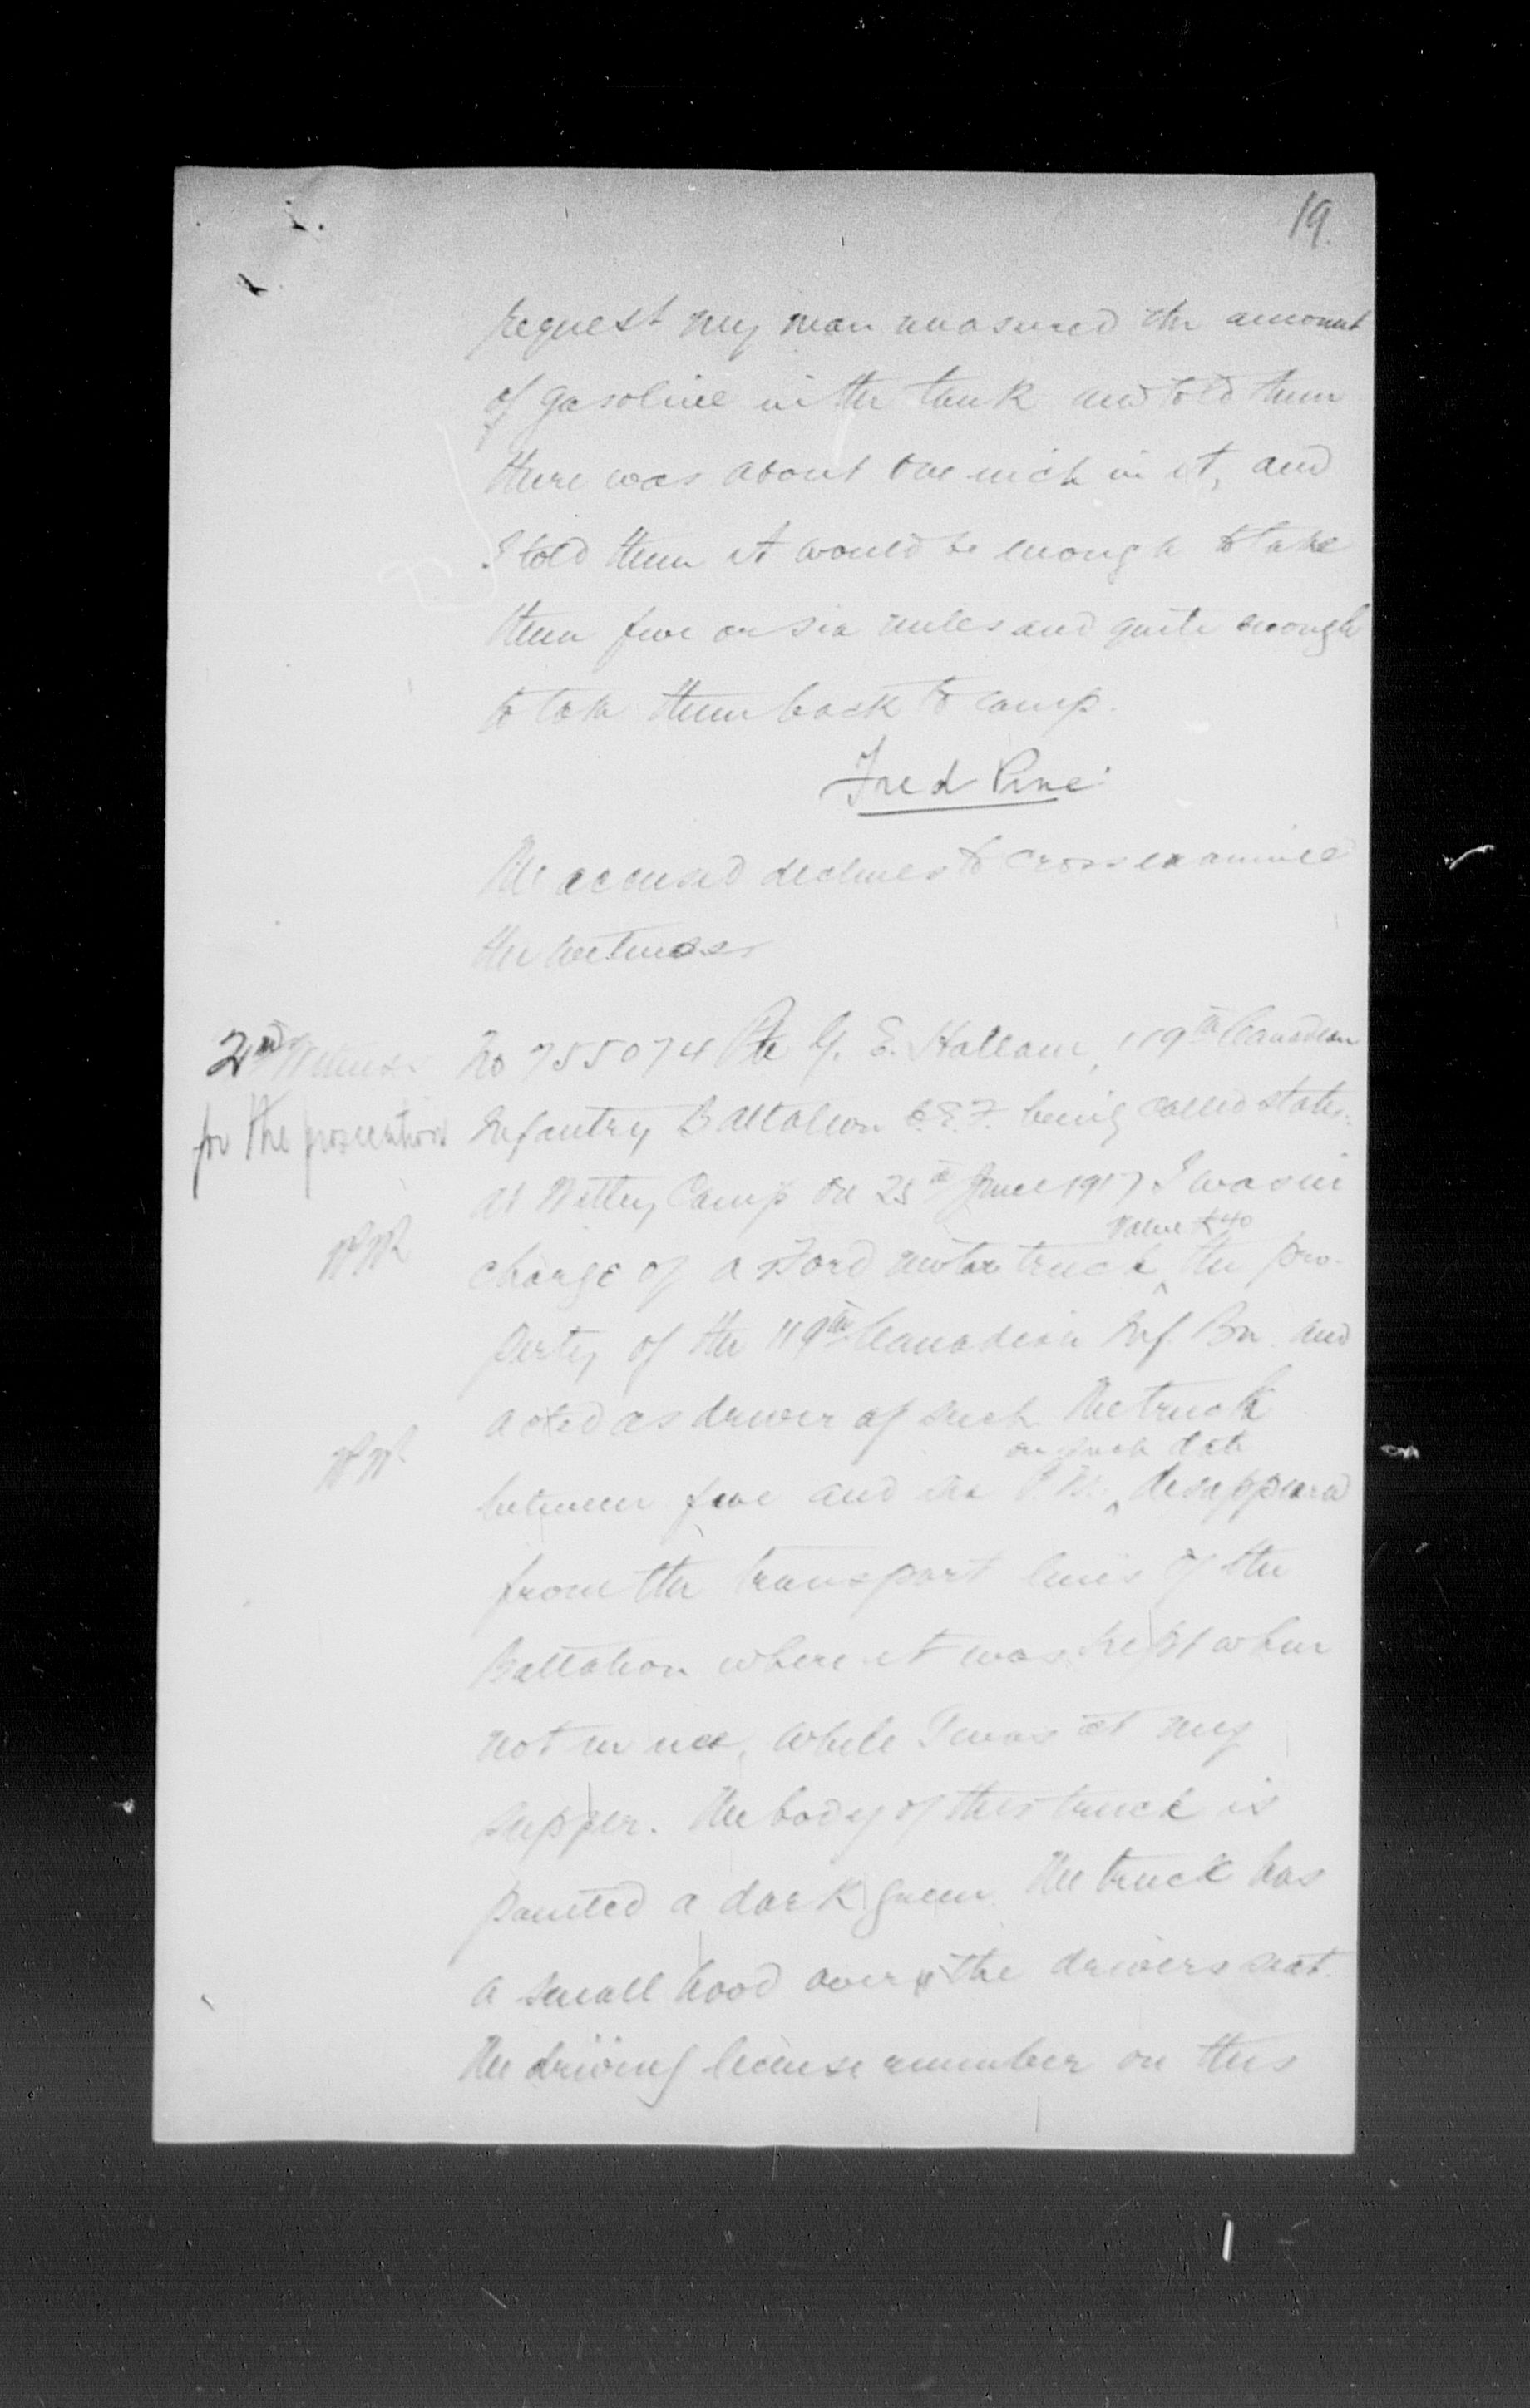 19.
request my man measured the amount
of gasoline in the tank and told them
there was about one inch in it, and
I told them it would be enough to take
them five or six miles and quite enough
to take them back to camp.
Fred Pine
The accused declines to cross examine
the witness
2nd Witness
for the prosecution
No 755074 Pte G. E. Hallam, 119th Canadian
Infantry Battalion C.E.F. being called states:
At Witley Camp on 25th June 1917 I was in
value £40
charge of a Ford motor truck the pro-
perty of the 119th Canadian Inf. Bn. and
acted as driver of such. The truck
on such date
between five and six P.M. disappeared
from the transport lines of the
Battalion where it was kept when
not in use, while I was at my
supper. The body of this truck is
painted a dark green. The truck has
a small hood over the drivers seat.
The driving license number on this